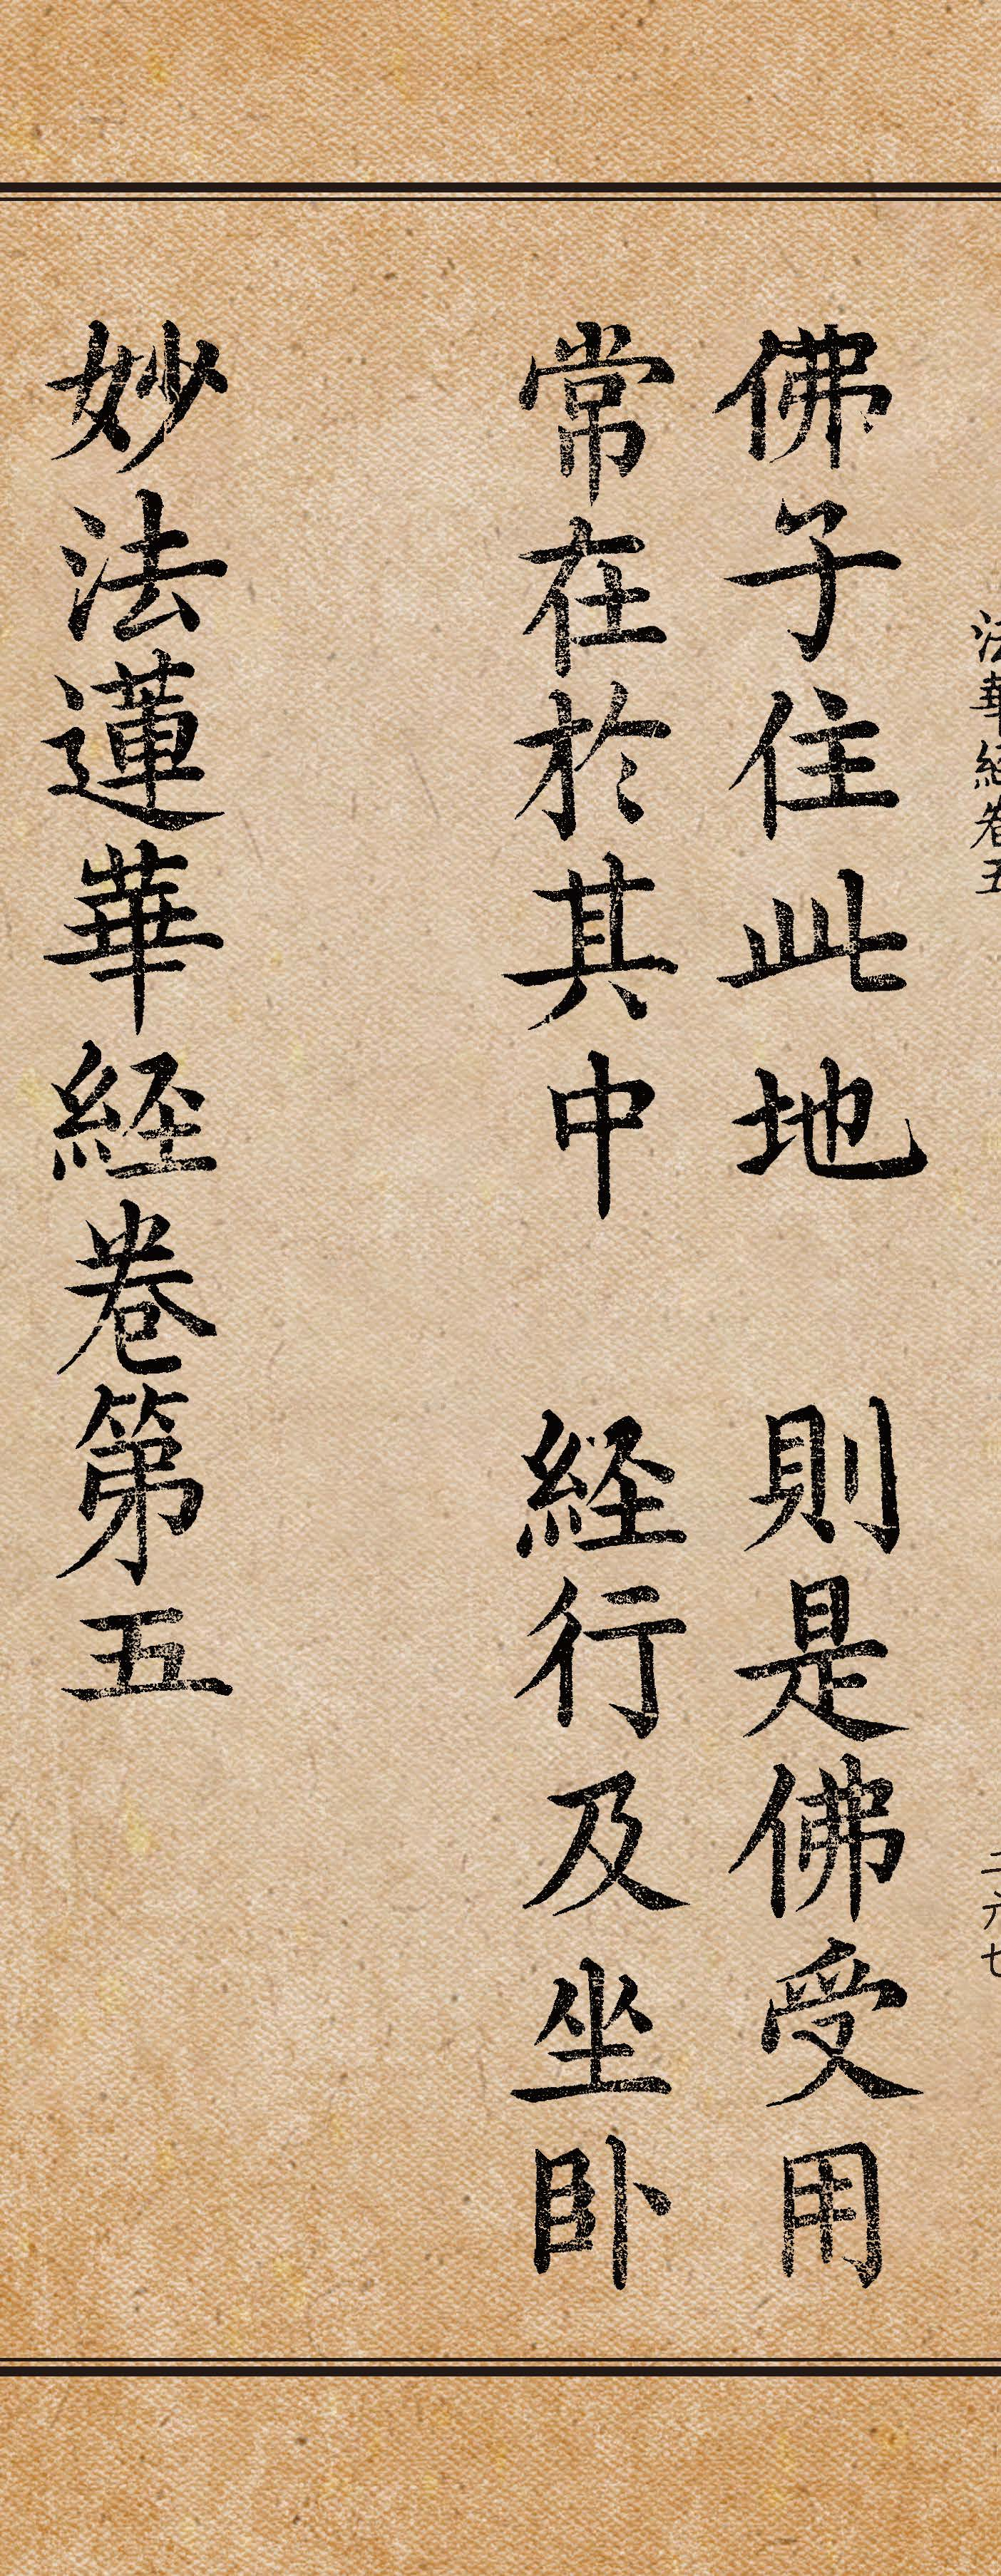 法華経巻五 二六七
佛子住此地 則是佛受用
常在於其中 経行及坐卧
妙法蓮華経卷第五